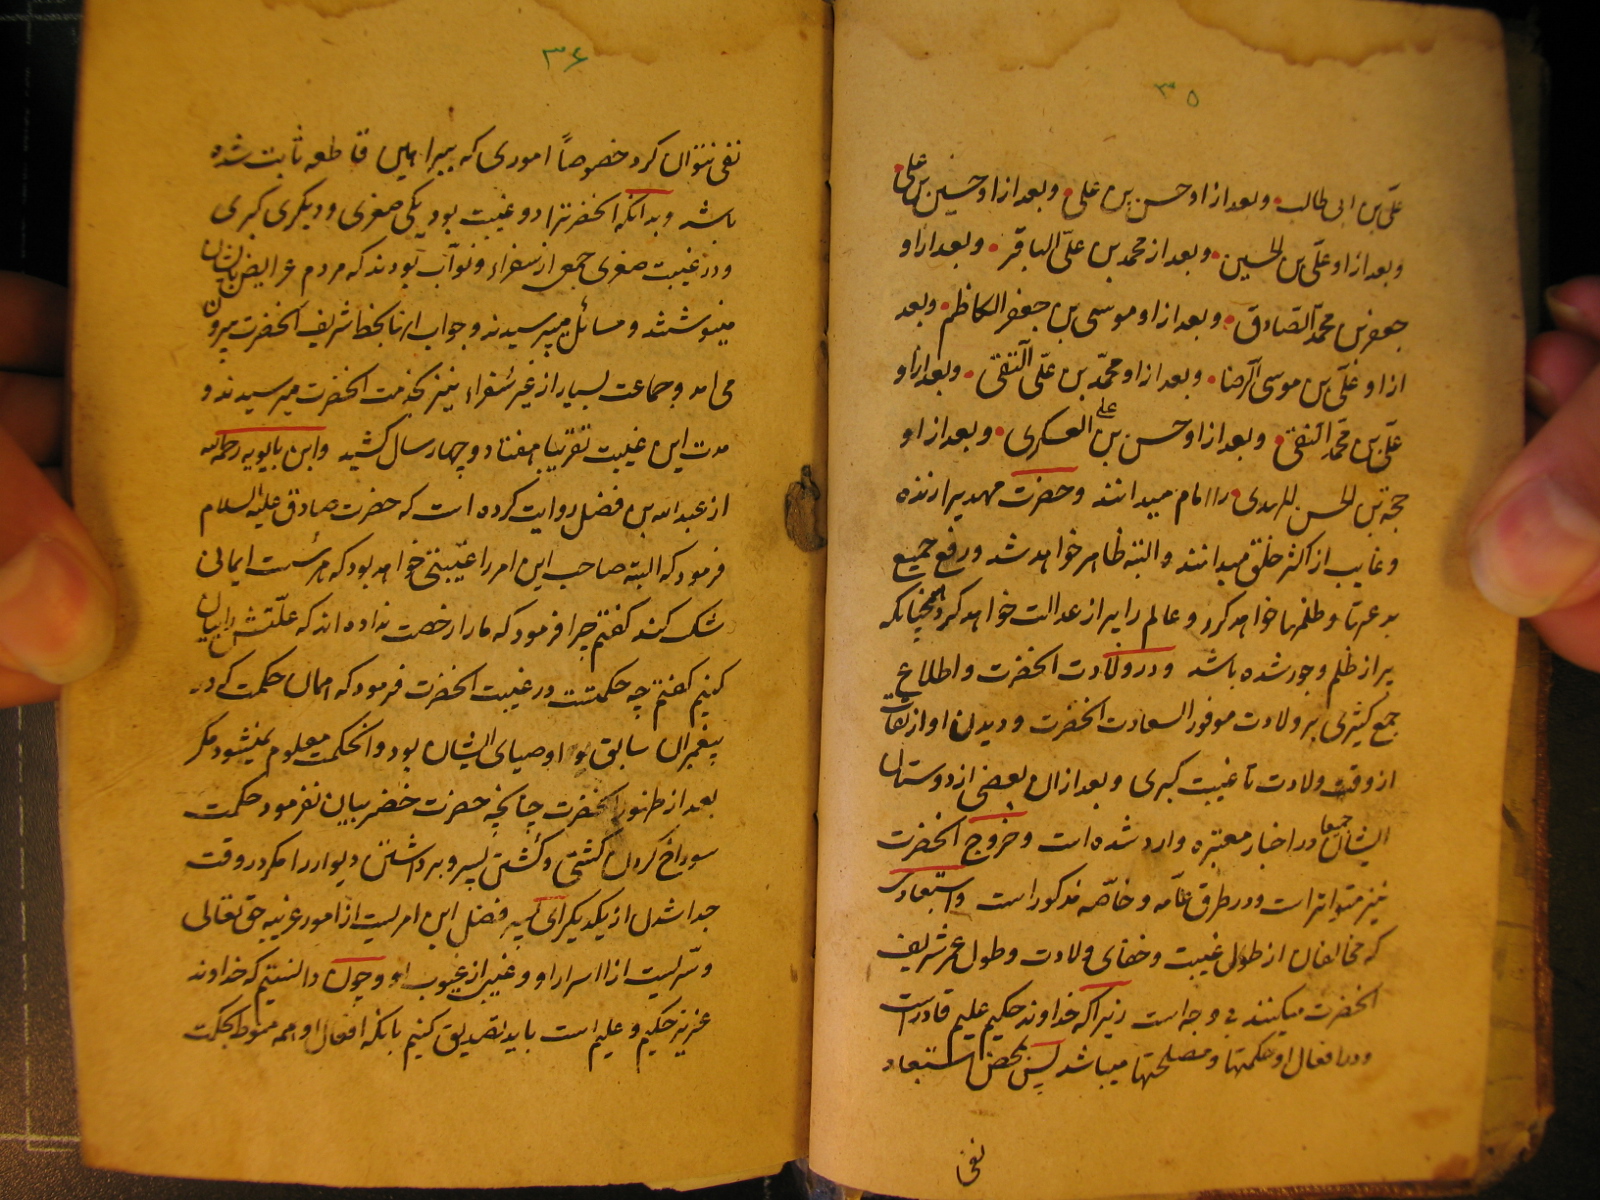 ۳۵
علی بن ابی طالب و بعد از او حسن بن علی و بعد از او حسین بن علی
و بعد از او علی بن الحسین و بعد از محمد بن علی الباقر و بعد از او
جعفر بن محمد الصادق و بعد از او موسی بن جعفر الکاظم و بعد
از او علی بن موسی الرضا و بعد از او محمد بن علی التقی و بعد از او
علی بن محمد النقی و بعد از او حسن بن علی العسکری و بعد از او
حجة بن الحسن المهدی را امام میدانند و حضرت مهدیرا زنده
و غایب از اکثر خلق میدانند و البته ظاهر خواهد شد و رفع جمیع
بدعتها و ظلمها خواهد کرد و عالم را پر از عدالت خواهد کرد همچنانکه
پر از ظلم و جور شده باشد و در ولادت انحضرت و اطلاع
جمع کثیری بر ولادت موفور السعادت انحضرت و دیدن او از ثقات
از وقت ولادت تا غیبت کبری و بعد از ان بعضی از دوستان
ایشان جمیعا در اخبار معتبره وارد شده است و خروج انحضرت
نیز متواتر است و در طرق عامه و خاصه مذکور است و استبعادی
که مخالفان از طول غیبت و خفای ولادت و طول عمر شریف
انحضرت میکنند بی وجه است زیرا که خداوند حکیم علیم قادر است
و در افعال او حکمتها و مصلحتها میباشد پس بمحض استبعاد
نفی
۳۶
نفی نتوان کرد خصوصاً اموری که ببراهین قاطعه ثابت شده
باشد و بدانکه انحضرترا دو غیبت بود یکی صغری و دیگری کبری
و در غیبت صغری جمعی از سفراء و نواب بودند که مردم عرایض بایشان
مینوشتند و مسائل میپرسیدند و جواب انها بخط شریف انحضرت بیرون
می امد و جماعت بسیار از غیر سفراء نیز بخدمت انحضرت میرسیدند و
مدت این غیبت تقریبا هفتاد و چهار سال کشید و ابن بابویه رحمه الله
از عبد الله بن فضل روایت کرده است که حضرت صادق علیه السلام
فرمود که البته صاحب این امر را غیبتی خواهد بود که هر سست ایمانی
شک کند گفتم چرا فرمود که ما را رخصت نداده اند که علتش را بیان
کنیم گفتم چه حکمتست در غیبت انحضرت فرمود که همان حکمت که در
پیغمبران سابق و اوصیای ایشان بود و انحکمت معلوم نمیشود مگر
بعد از ظهور انحضرت چنانچه حضرت خضر بیان نفرمود حکمت
سوراخ کردن کشتی و کشتن پسر و برداشتن دیوار را مکر در وقت
جدا شدن از یکدیگر ای پسر فضل این امریست از امور غریبه حق تعالی
و سریست از اسرار او و غیبی از غیوب او و چون دانستیم که خداوند
عزیز حکیم و علیم است باید تصدیق کنیم بانکه افعال او همه منوط بحکمت